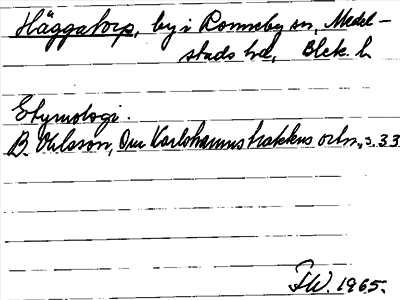 Häggatorp, by i Ronneby sn, Medel-
stads hd, Blek. l.
Etymologi.
B. Ohlsson, Om Karlshamnstraktens ortn., s. 33
FW. 1965.